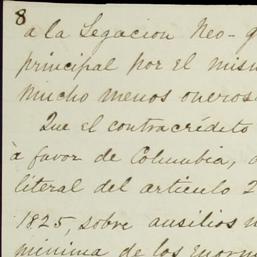 8
a la Legacion Neo-g
principal por el mism
mucho menos oneros
Que el contracrédito
à favor de Columbia,
literal del articulo 2
1825, sobre ausilios
minima de los enorm